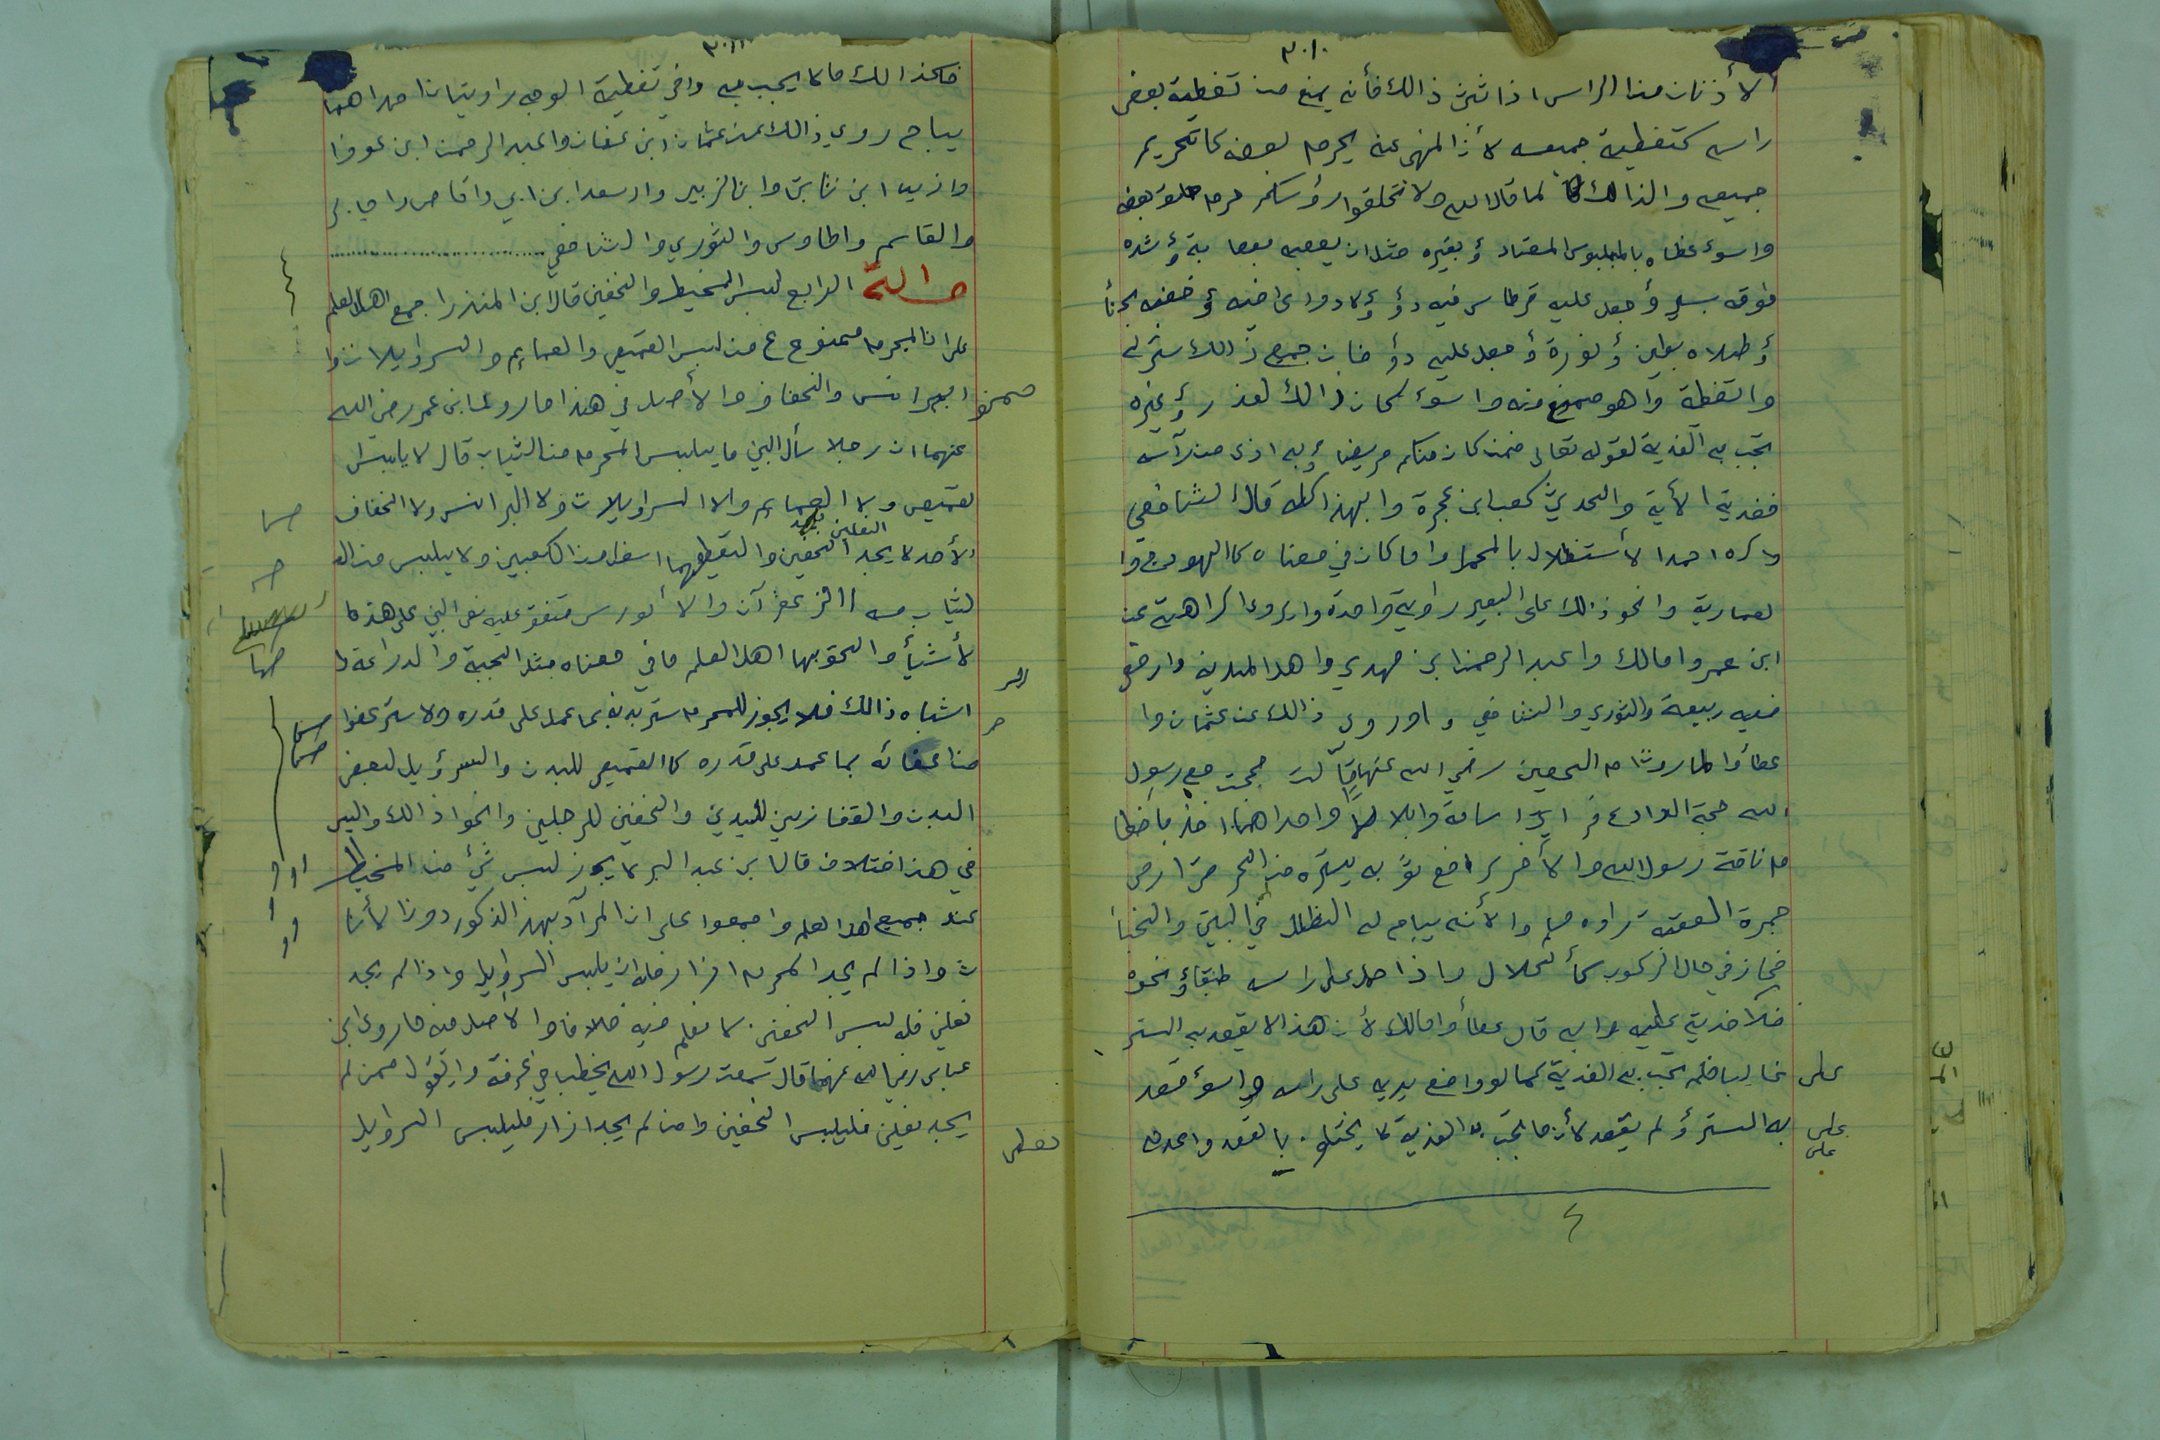 ٣٠١٠
الأذنان من الراس اذا ثبت ذالك فأنه يمنع من تغطية بعض
راسه كتغطية جميعه لأن المنهى عنه يحرم بعضه كما تحريم
جميعه والذالك لما قال الله ولا تحلقوا رؤسكم حرم حلق بعضه
واسوء غطاه بالملبوس المعتاد ؤ بغيره مثل ان يعصبه بعصابة ؤ شده
فوقه بسير ؤ جعل عليه قرطاس فيه دؤ ؤ لا دواى فيه ؤ خضبه بحنأ
ؤ طلاه بطين ؤ نورة ؤ جعل عليه دؤ فان جميع ذالك ستر له
والتغطة واهو ممنوع منه واسوء كان ذالك لعذر ؤ غيره
تجب به الفدية لقوله تعالى فمن كان منكم مريضا ؤ به اذى من رآسه
ففدية الأية والحديث كعب ابن عجرة وابهذا كله قال الشافعي
وكره احمد الأستظلال بالمحمل واما كان في معناه كا الهودج وا
لعمارية وانحو ذالك على البعير راوية واحدة واروى اكراهية عن
ابن عمر وامالك واعبد الرحمن ابن مهدي واهل المدينه وارخص
فيه ربيعة والثوري والشافعي واروى ذالك عن عثمان وا
عطأ ولما روت ام الحصين رضي الله عنها قالت حججت مع رسول
الله حجة الوادع فرايت اسامة وابلال واحداهما اخذ باخطا
م ناقة رسول الله والأخر رافع ثوبه يستره من الحر حتا رمى
جمرة العقبة رواه مسلم والأنه يباح له التظلل في البيت والخبأ
فجاز في حال الركوب كألحلال واذا حمل على راسه طبقا ؤ نحوه
فلا فدية عليه وابه قال عطأ وامالك لأن هذا لا يقصد به الستر
غالبا فلم تجب به الفدية كما لو واضع يديه على راسه واسوء قصد
به الستر ؤ لم يقصد لأن ما تجب به الفدية لا يختلف بالقصد واعدمه
على
على
على
٣٠١١
فكذالك ما لا يجب به وافي تغطية الوجه راويتان احداهما
يباح روي ذالك عن عثمان ابن عفان واعبد الرحمن ابن عوف وا
وازيد ابن ثابت وابن الزبير واسعد ابن ابي واقاص واجابر
والقاسم واطاوس والثوري والشافعي
الرابع لبس المخيط والخفين قال ابن المنذر اجمع اهل العلم
على ان المحرم ممنوع من لبس القميص والعمايم والسراويلات وا
البرانس والخفاف والأصل في هذا ما روى ابن عمر رضي الله
عنهما ان رجلا سأل النبي ما يلبس المحرم من الثياب قال لا يلبس
لقميص ولا العمايم ولا السراويلات ولا البرانس ولا الخفاف
النعلين
الأحد لا يجد الخفين واليقطعهما اسفل من الكعبين ولا يلبس من ال
لثياب مسه الزعفرآن والأ لورس متفق عليه نص النبي على هذه
لأشيأ والحق بها اهل العلم ما في معناه مثل الجبة والدراعة وا
اشباه ذالك فلا يجوز للمحرم ستر بدنه بما عمل على قدره ولا ستر عضوا
من اعضائه بما عمل على قدره كا القميص للبدن والسرؤيل لبعض
البدن والقفازين لليدين والخفين للرجلين وانحوا ذالك واليس
في هذا اختلاف قال ابن عبد البر لا يجوز لبس شئ من المخيط
عند جميع اهل العلم واجمعوا على ان المرآد بهذا الذكور دون الأنا
ث واذا لم يجد المحرم ازار فله ان يلبس السراويل واذا لم يجد
نعلين فله لبس الخفين لا نعلم فيه خلافا والاصل فيه ما روى ابن
عباس رضي الله عنهما قال سمعت رسول الله يخطب في عرفة وايقول من لم
يجد نعلين فليلبس الخفين وامن لم يجد ازار فليلبس السراويل